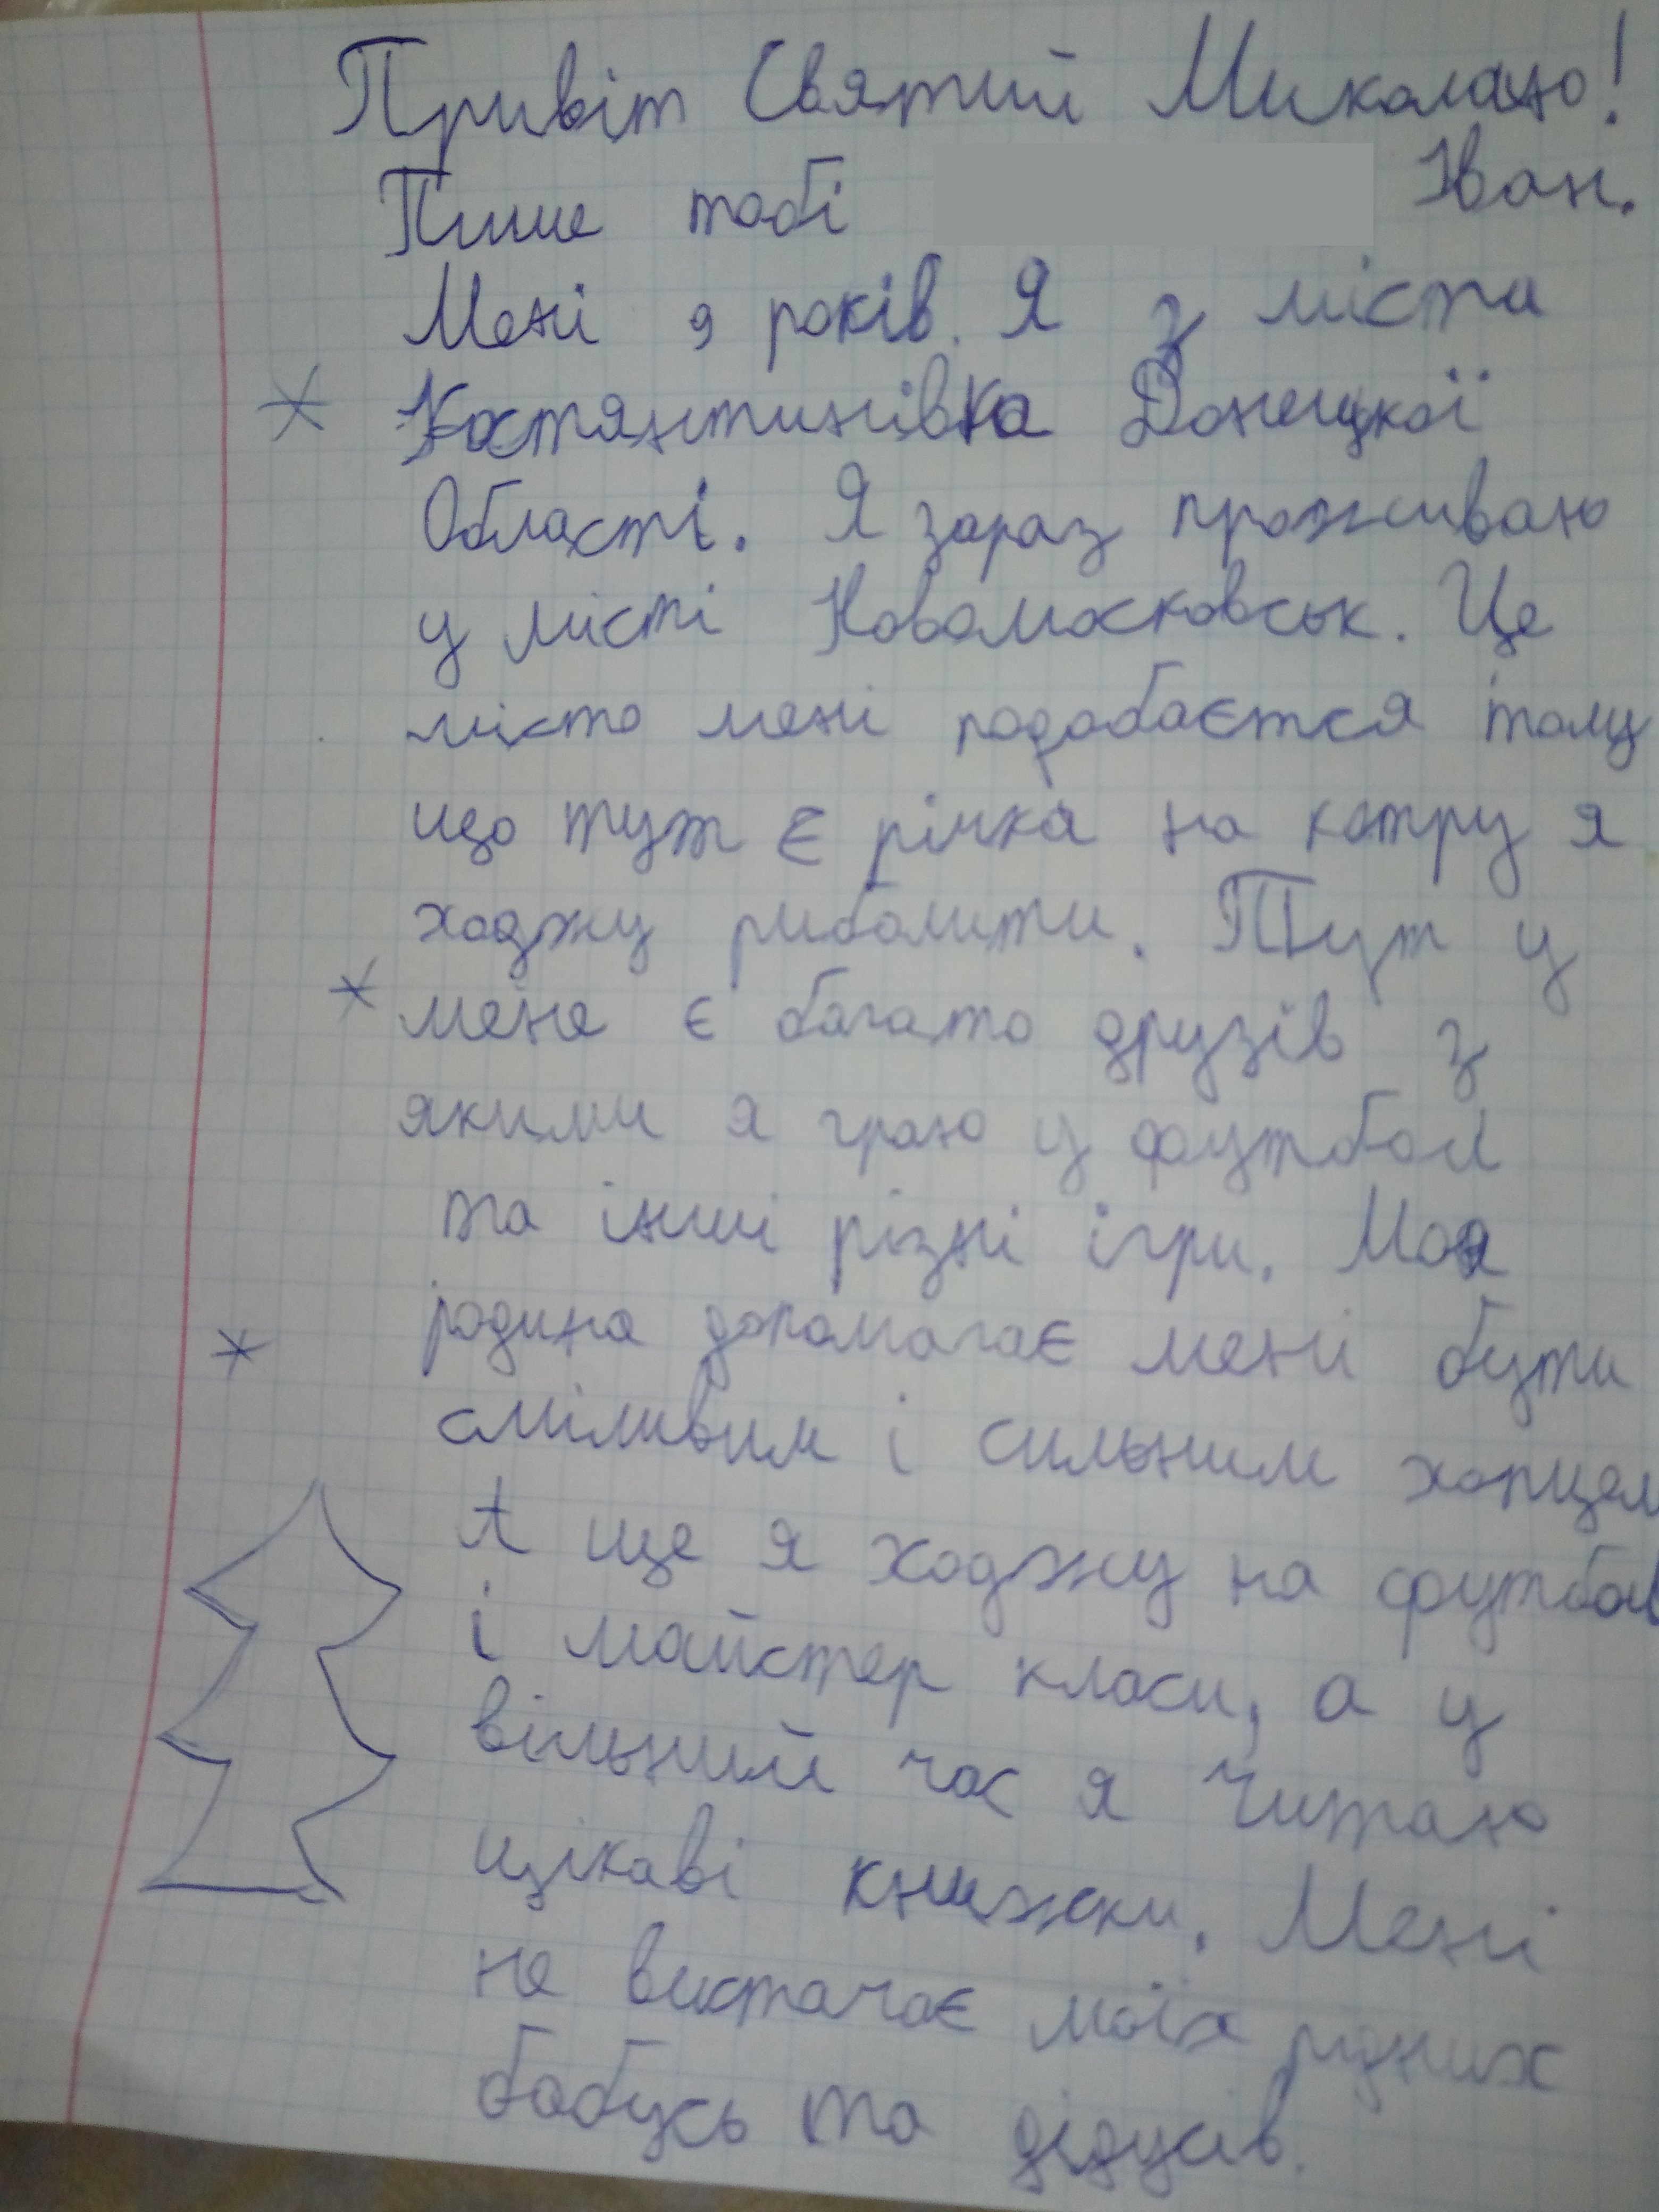 Привіт Святий Миколаю!
Пише тобі Іван.
Мені 9 років. Я з міста
Костянтинівка Донецької
Області. Я зараз проживаю
у місті Новомосковськ. Це
місто мені подобається тому
що тут є річка на котру я
ходжу риболити. Тут у
мене є багато друзів з
якими я граю у футбол
та інші різні ігри. Моя
родина допомагає мені бути
сміливим і сильним хопцем
А ще я ходжу на футбол
і майстер класи, а у
вільний час я читаю
цікаві книжки. Мені
не вистачає моїх рідних
бабусь та дідусів.